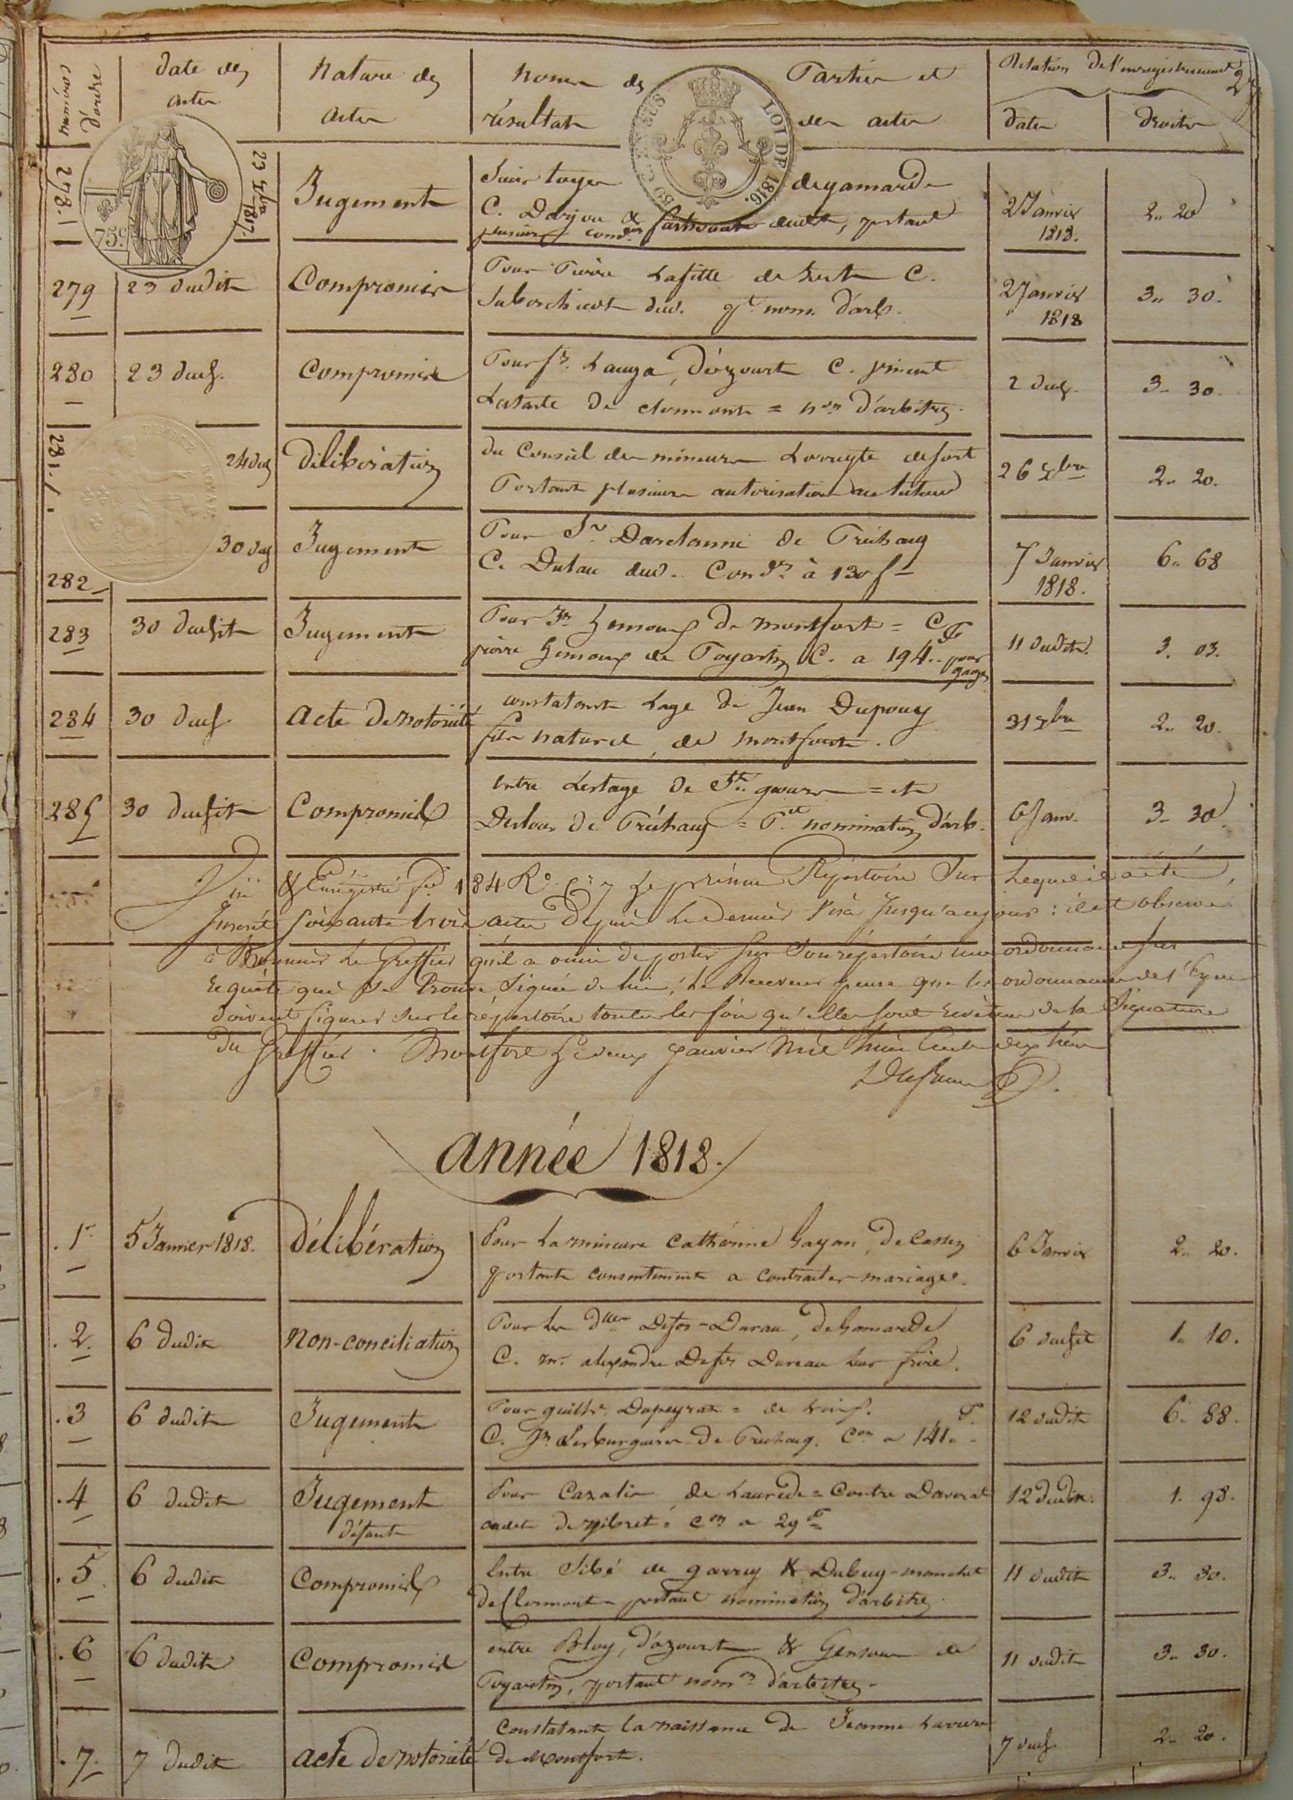 numéros d'ordre
Date des actes
Nature des actes
Noms des Parties et
résultats des actes
Relation de l'enregistrement
dates
droits
LOI DE 1816
75c
278.
23 Xbre 1817.
Jugement
degamarde
C. Darjou &
portant
2 Janvier 1818.
2.. 20
279
23 dudit
Compromis
Pour Pierre Lafitte de C.
dud. pt. nomn. d'arb.
2 Janvier 1818
3.. 30.
280
23 dud.
Compromis
Pour Lauga, d'ozourt C. vincent
Lataste de clermont = non d'arbitres.
2 dud.
3.. 30.
281.
24 dud
Délibération
du Conseil des mineurs Larruyte
Portant plusieurs autorisations au tuteur
26 Xbre
2.. 20.
282
30 dud
Jugement
Pour Sr. Darclanne de Préchacq
C. Dulau dud. Condon à 130 f
7 Janvier 1818.
6.. 68
283
30 dudit
Jugement
Pour Jn Gensous de montfort = C.
pierre Gensous de Poyartin C. a 194.. pour gages
11 dudit.
3. 03.
284
30 dud.
acte de notoriété
constatant l'age de Jean Dupouy
fils naturel, de montfort.
31 Xbre
2.. 20.
285
30 dudit
Compromis
entre Lestage de St. geours = et
Deslous de Préchacq = Pt nomination d'arb.
6 Janv.
3.. 30
Visé & Enregistré fo 184 Ro. Le présent Répertoire sur lequel il a été
inscrit soixante trois actes depuis le dernier visa jusqu'a ce jour : il est observé
à Monsieur le Greffier qu'il a omis de porter sur son répertoire une ordonnance sur
requête qui se trouve signée de lui; le Receveur pense que les ordonnances de l'Espèce
doivent figurer sur le répertoire toutes les fois qu'elles sont revêtues de la signature
du Greffier. Montfort le deux janvier Mil huit cent dix huit
année 1818.
1r
5 Janvier 1818.
délibération
Pour La mineure Catherine Gayan, de Cassen
portant consentement a contracter mariage.
6 Janvier
2.. 20.
2.
6 dudit
non-conciliation
Pour les dlles Defos-Durau, de Gamarde
C. mr. alexandre Defos Dureau leur frère.
6 dudit
1.. 10.
3
6 dudit
Jugement
Pour guilhe. Dupeyrat =
C. Jn Lesburgueres de Préchacq. Con a 141..
12 dudit
6.. 88.
4
6 dudit
Jugement
défaut
Pour Cazalis, de Laurède = Contre Daverat
cadet de = Con a 29 f
12 dudit.
1. 98.
5
6 dudit
Compromis
Entre Sibé de garrey & Dubuy-
de Clermont portant nomination d'arbitres.
11 dudit
3.. 30.
6
6 dudit
Compromis
entre Bloy, d'ozourt & Gensous de
Poyartin, portant nomon d'arbitres.
11 dudit
3.. 30.
7.
7 dudit
acte de notoriété
Constatant la naissance de Jeanne Larrere
de Montfort.
7 dud.
2.. 20.